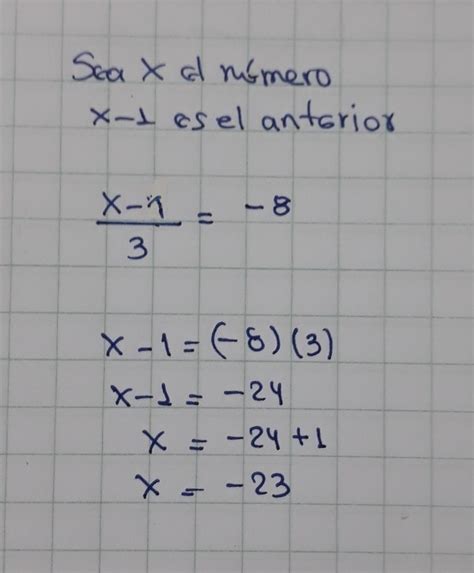 Sea x el número
x-1 es el anterior
x-1
3
= -8
x-1=(-8)(3)
x-1= -24
x = -24+1
x = -23